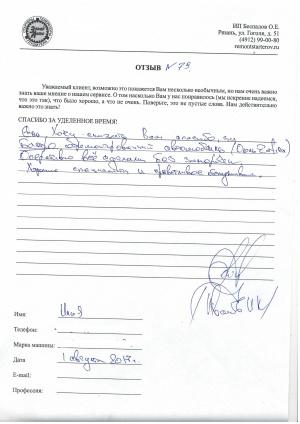 ИП Беспалов О.Е.
Рязань, ул. Гоголя, д. 51
(4912) 99-00-80
remontstarterov.ru
ОТЗЫВ №79.
Уважаемый клиент, возможно это покажется Вам несколько необычным, но нам очень важно
знать ваше мнение о нашем сервисе. О том насколько Вам у нас понравилось (мы искренне надеемся,
что это так), что было хорошо, а что не очень. Поверьте, это не пустые слова. Нам действительно
важно это знать!
СПАСИБО ЗА УДЕЛЕННОЕ ВРЕМЯ!
Хочу сказать Вам спасибо, за
автомобиля
Оперативно всё сделали без
Хорошие и
Имя:
Телефон:
Марка машины:
Дата 1 августа 2017г.
E-mail:
Профессия: